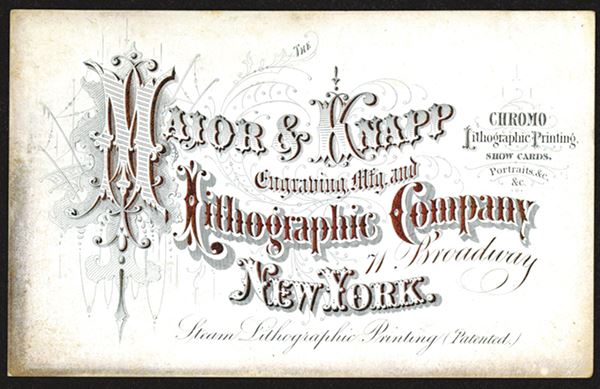 THE
MAJOR & KNAPP
Engraving, Mfg. and
Lithographic Company
71 Broadway
NEW YORK.
Steam Lithographic Printing (Patented.)
CHROMO
Lithographic Printing.
SHOW CARDS.
Portraits, &c.
&c.